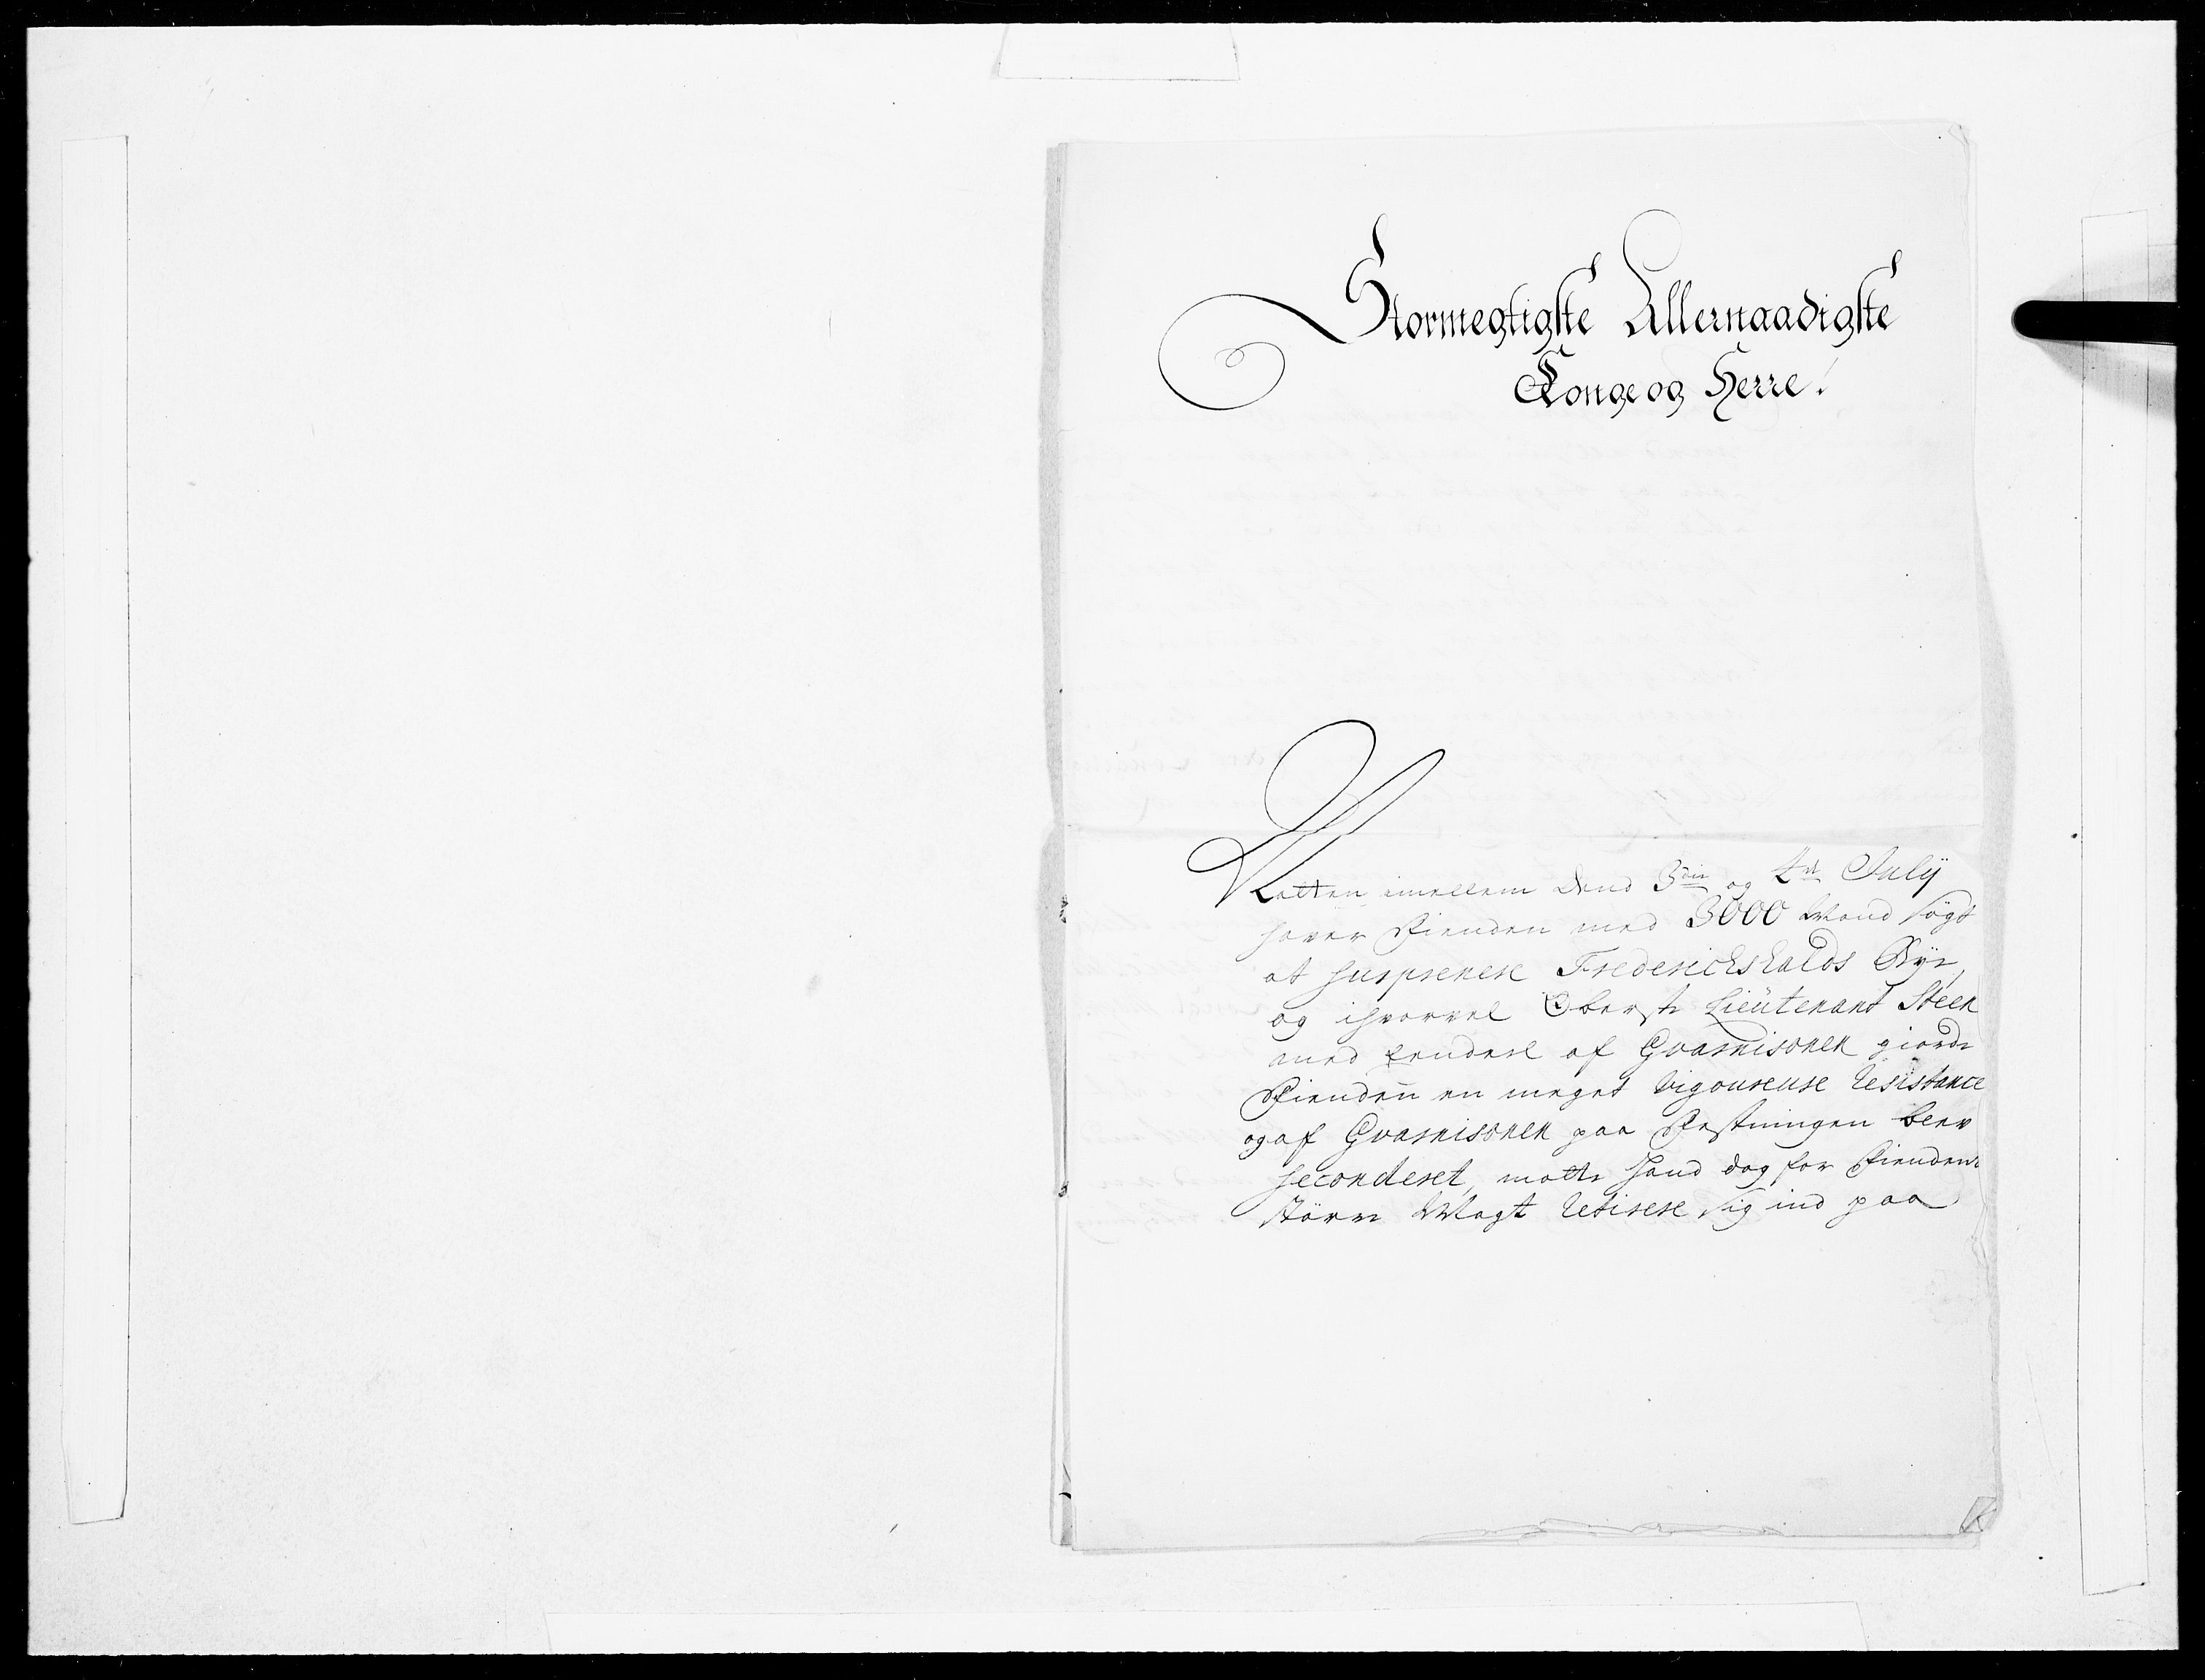 Stormegtigste Allernaadigste
Konge og Herre!
Natten imellem dend 3die og 4de Julÿ
haver Fienden med 3000 Mand søgt
at surprenere Friderichshalds Bÿe,
og ihvorvel Oberste Lieutenant Steen
med endeel af Gvarnisonen giorde
Fienden en meget vigoureuse resistance
og af Gvarnisonen paa Festningen blev
seconderet, motte hand dog for Fiendens
større Magt retirere sig ind paa